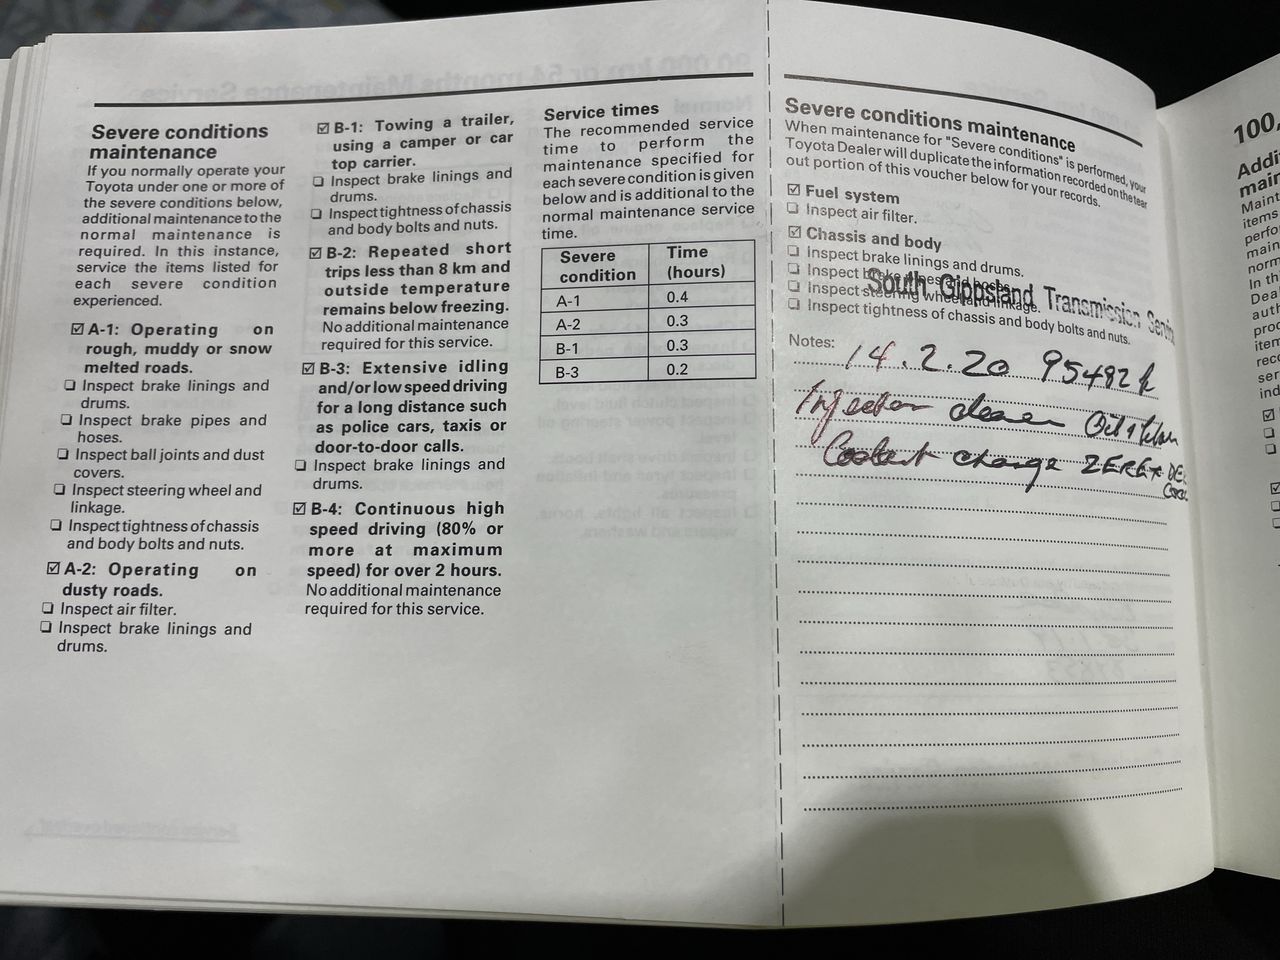 Severe conditions
maintenance
If you normally operate your
Toyota under one or more of
the severe conditions below,
additional maintenance to the
normal maintenance is
required. In this instance,
service the items listed for
each severe condition
experienced.
☑ A-1: Operating on
rough, muddy or snow
melted roads.
❏ Inspect brake linings and
drums.
❏ Inspect brake pipes and
hoses.
❏ Inspect ball joints and dust
covers.
❏ Inspect steering wheel and
linkage.
❏ Inspect tightness of chassis
and body bolts and nuts.
☑ A-2: Operating on
dusty roads.
❏ Inspect air filter.
❏ Inspect brake linings and
drums.
☑ B-1: Towing a trailer,
using a camper or car
top carrier.
❏ Inspect brake linings and
drums.
❏ Inspect tightness of chassis
and body bolts and nuts.
☑ B-2: Repeated short
trips less than 8 km and
outside temperature
remains below freezing.
No additional maintenance
required for this service.
☑ B-3: Extensive idling
and/or low speed driving
for a long distance such
as police cars, taxis or
door-to-door calls.
❏ Inspect brake linings and
drums.
☑ B-4: Continuous high
speed driving (80% or
more at maximum
speed) for over 2 hours.
No additional maintenance
required for this service.
Service times
The recommended service
time to perform the
maintenance specified for
each severe condition is given
below and is additional to the
normal maintenance service
time.
Severe condition Time (hours)
A-1 0.4
A-2 0.3
B-1 0.3
B-3 0.2
Severe conditions maintenance
When maintenance for "Severe conditions" is performed, your
Toyota Dealer will duplicate the information recorded on the tear
out portion of this voucher below for your records.
☑ Fuel system
❏ Inspect air filter.
☑ Chassis and body
❏ Inspect brake linings and drums.
❏ Inspect brake pipes and hoses.
❏ Inspect steering wheel and linkage.
❏ Inspect tightness of chassis and body bolts and nuts.
South Gippsland Transmission
Notes: 14.2.20 95482k
Injector cleaner Oil &
Coolant change ZEREX
100,